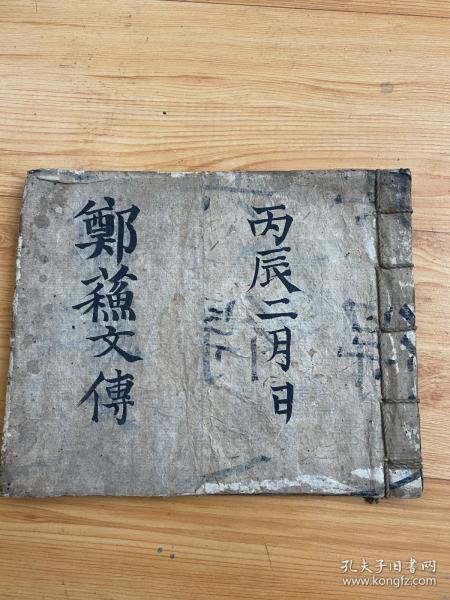 丙辰二月日
鄭蘓文傳
孔夫子旧书网
www.kongfz.com